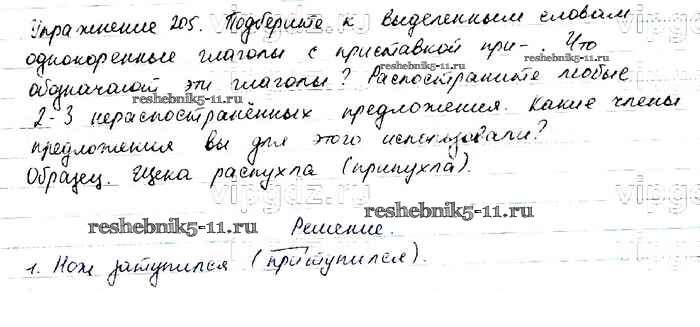 Упражнение 205. Подберите к выделенным словам
однокоренные глаголы с приставкой при-. Что
обозначают эти глаголы? Распостраните любые
reshebnik5-11.ru
2-3 нераспостранённых предложения. Какие члены
предложения вы для этого использовали?
Образец. Щека распухла (припухла).
reshebnik5-11.ru reshebnik5-11.ru
Решение.
1. Нож затупился (притупился).